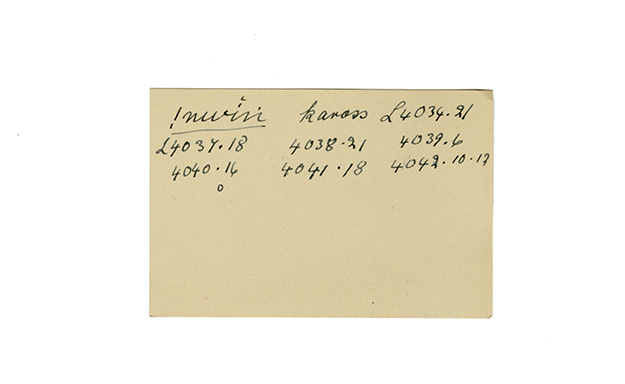 !nwiṅ kaross L4034.21
L4037.18 4038.21 4039.6
4040.16 4041.18 4042.10.12